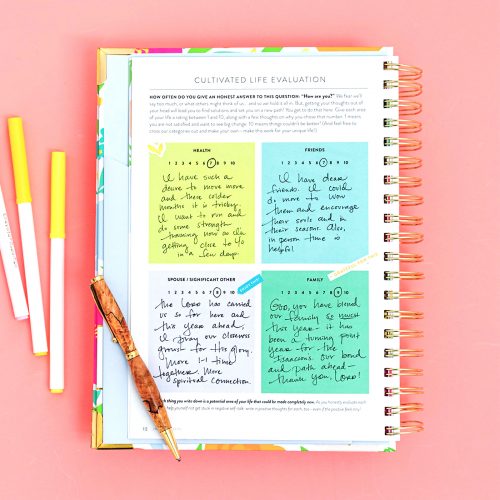 CULTIVATED LIFE EVALUATION
HOW OFTEN DO YOU GIVE AN HONEST ANSWER TO THIS QUESTION: "How are you?" We fear we'll
say too much, or what others might think of us... and so we hold it all in. But, getting your thoughts out of
your head will lead you to find solutions and set you on a new path! You get to do that here. Give each area
of your life a rating between 1 and 10, along with a few thoughts on why you chose that number. 1 means
you are not satisfied and want to see big change. 10 means things couldn't be better! (And feel free to
cross our categories out and make your own – make this work for your unique life!)
HEALTH
1 2 3 4 5 6 7 8 9 10
I have such a
desire to move more
and these colder
months it is tricky.
I want to run and
do some strength
training now as I'm
getting close to 40
in a few days.
FRIENDS
1 2 3 4 5 6 7 8 9 10
I have dear
friends. I could
do more to wow
them and encourage
their souls and in
their seasons. Also,
in person time is
helpful.
SPOUSE / SIGNIFICANT OTHER
1 2 3 4 5 6 7 8 9 10
The LORD has carried
us so far here and
this year ahead,
I pray our closeness
grows for His glory.
More 1-1 time
together. More
spiritual connection.
FAMILY
1 2 3 4 5 6 7 8 9 10
God, you have blend
our family so much
this year it has
been a turning point
year for the
Isaacons. Our bond
and path ahead –
thank you, LORD!
thing you write down is a potential area of your life that could be made completely new. As you honestly evaluate each
help yourself not get stuck in negative self-talk: write in positive thoughts for each, too – even if the positive feels tiny!
12